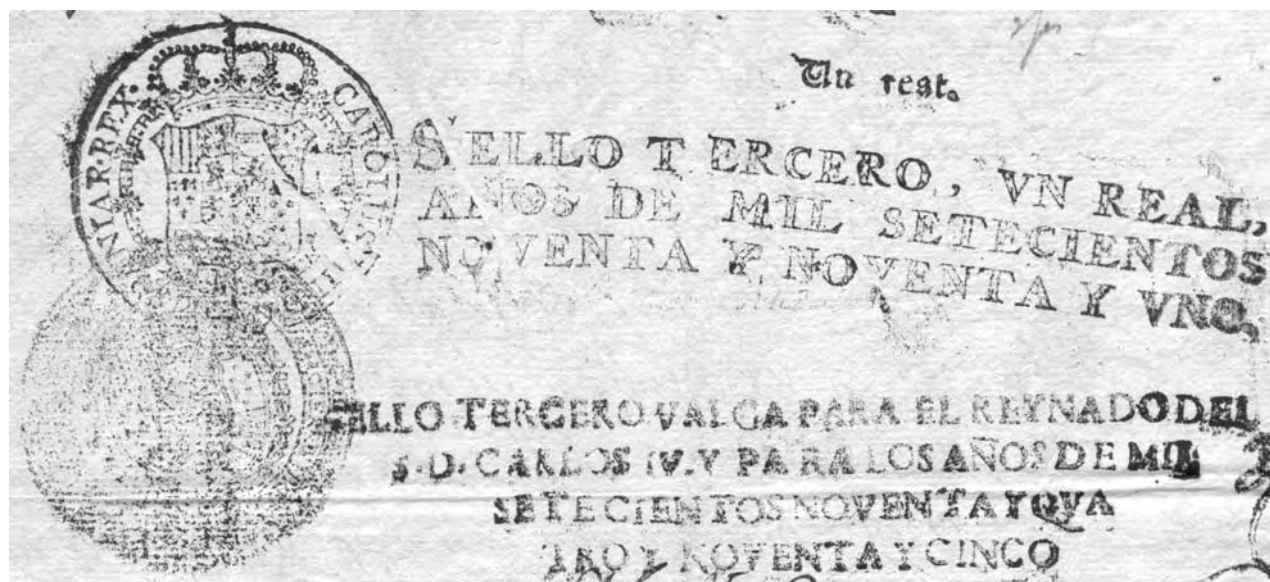 Un real.
SELLO TERCERO, VN REAL,
AÑOS DE MIL SETECIENTOS
NOVENTA Y NOVENTA Y VNO,
CAROLUS
IAR·REX·
SELLO TERCERO VALGA PARA EL REYNADO DEL
S.D. CARLOS IV. Y PARA LOS AÑOS DE MIL
SETECIENTOS NOVENTA Y QVA
TRO Y NOVENTA Y CINCO